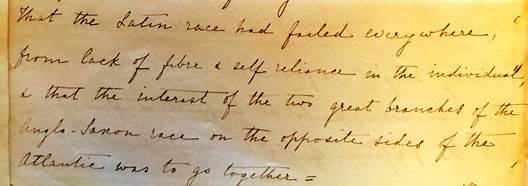 That the Latin race had failed everywhere,
from lack of fibre & self reliance in the individual,
& that the interest of the two great branches of the
Anglo-Saxon race on the opposite sides of the
Atlantic was to go together =